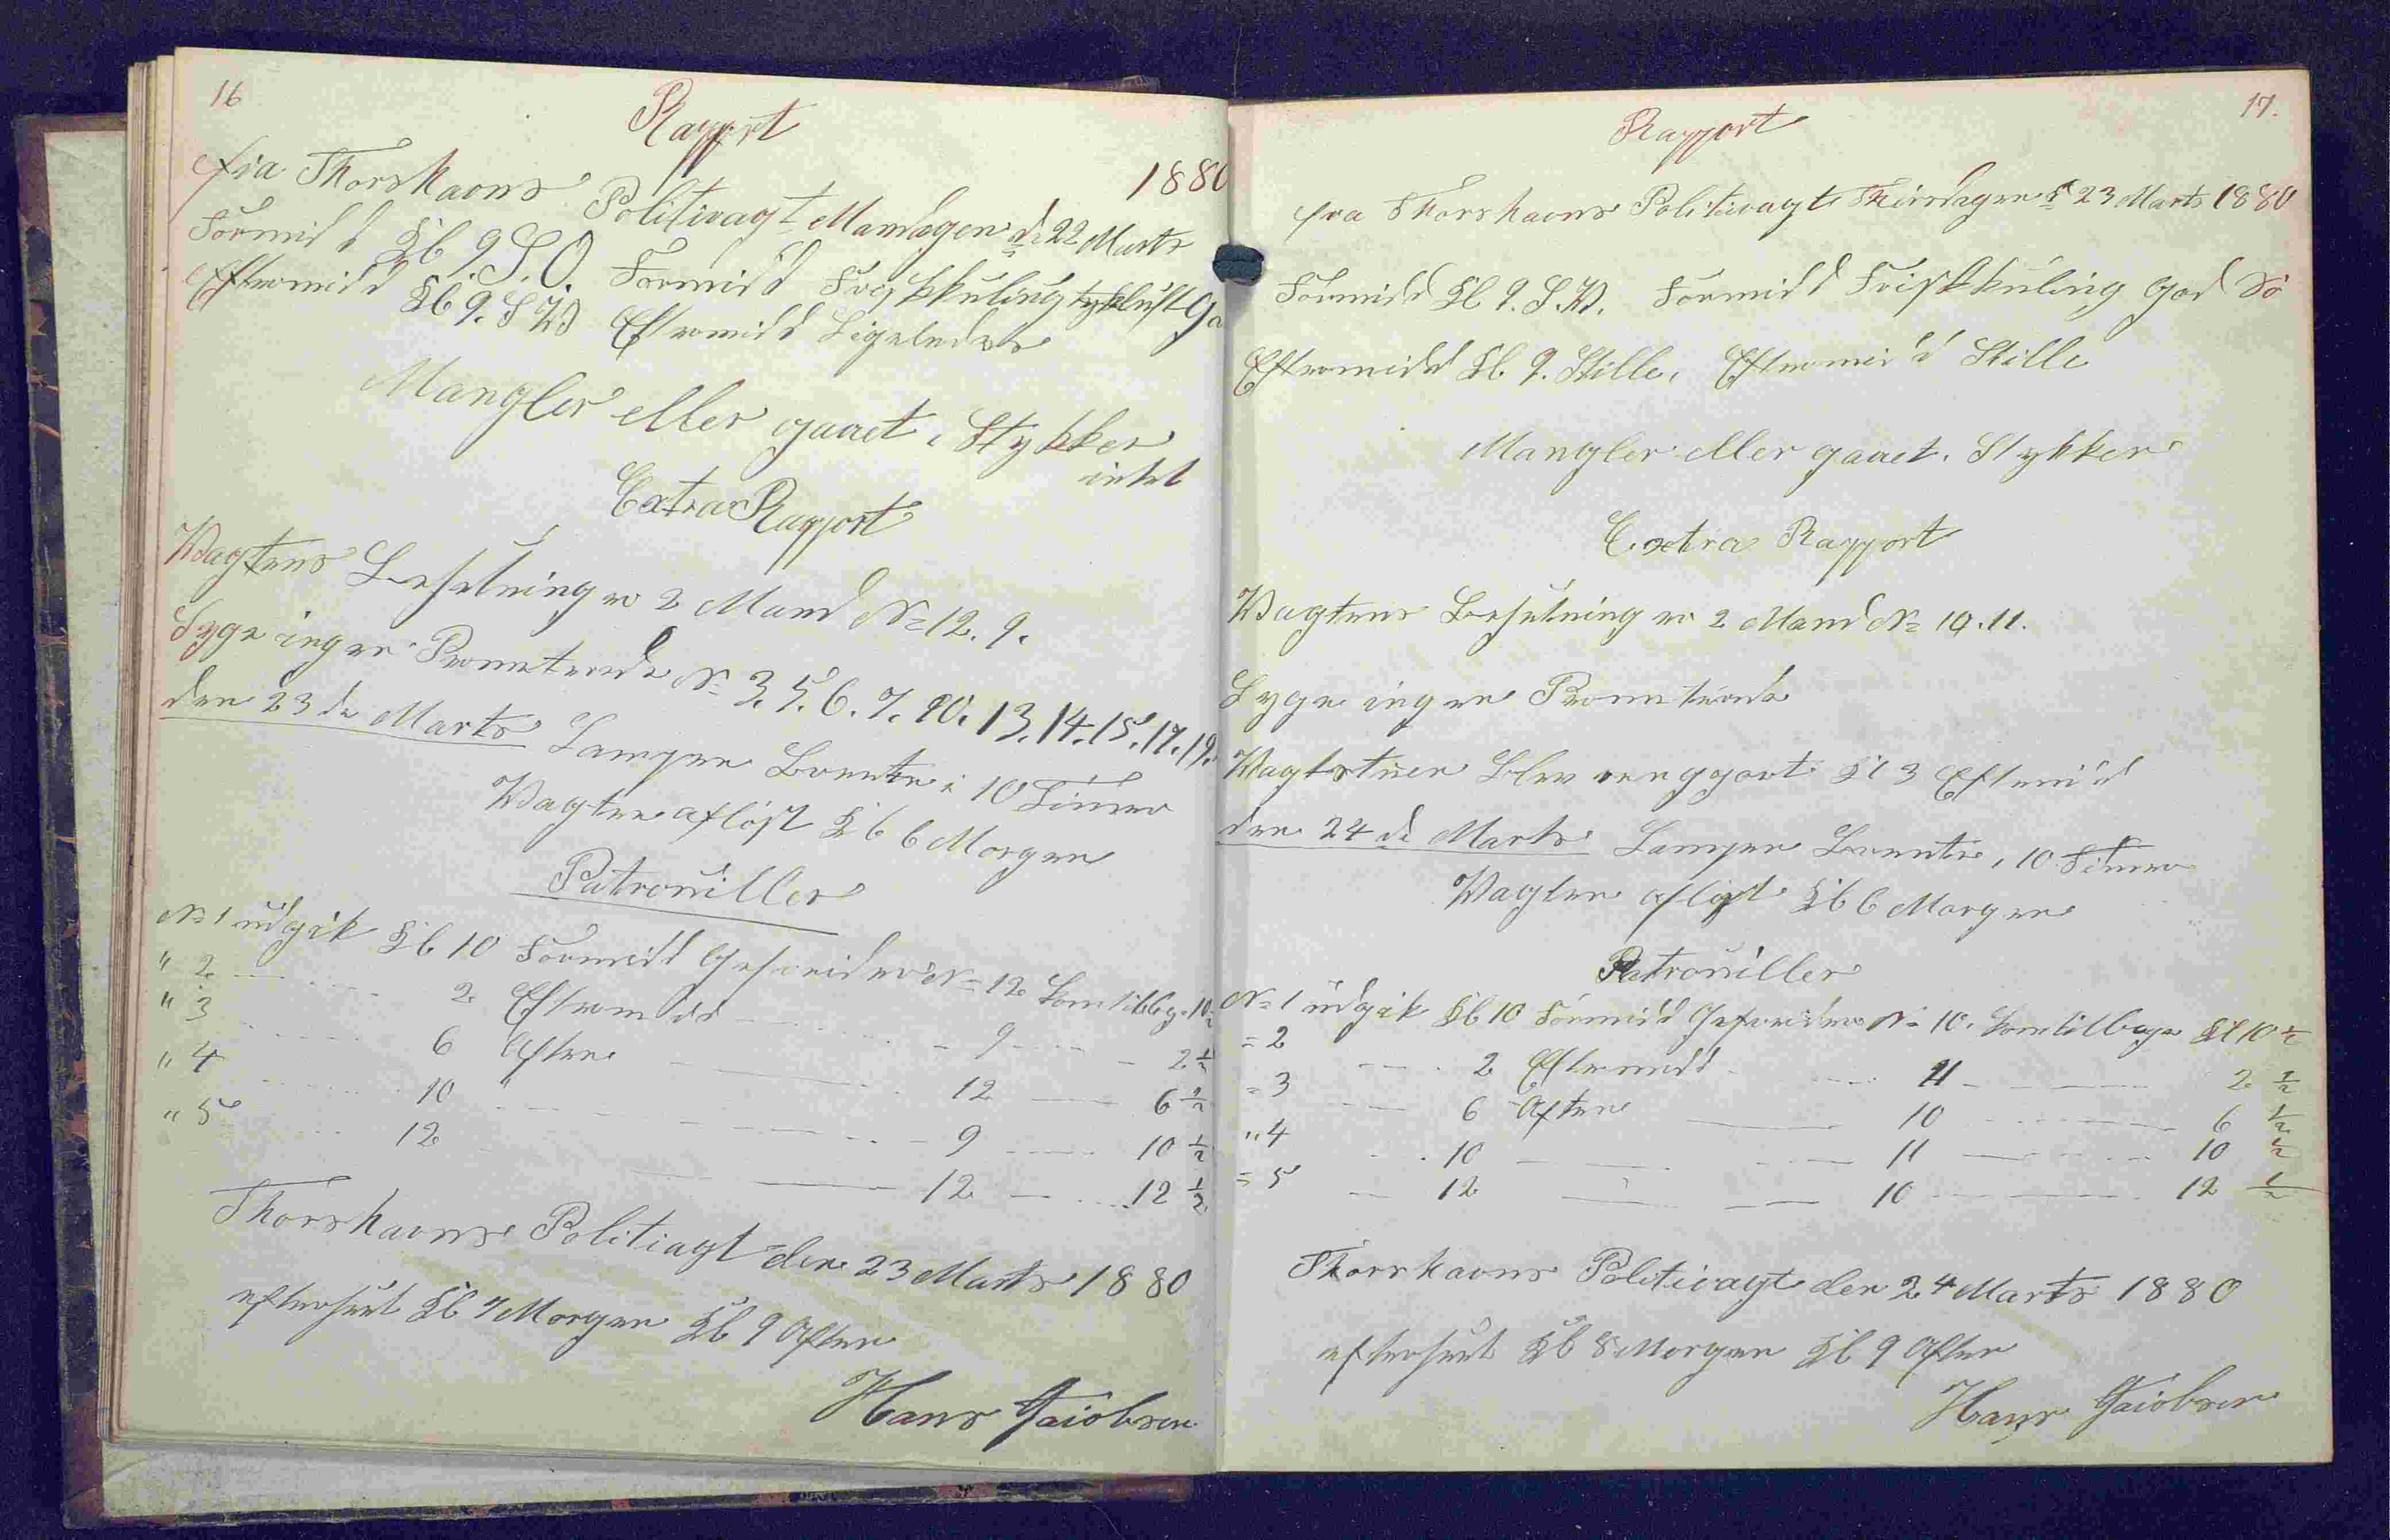 16
Rapport
1880
fra Thorshavns Politivagt Mandagen d. 22 Marts
Formidd Kl 9. S.O. Formidd kuling tyk luft
Eftermidd Kl 9. S W Eftermidd Ligeledes
Mangler eller gaaet i Stykker
intet
Extra Rapport
Vagtens Besætning er 2 Mand No 12. 9.
Syge ingen No 3. 5. 6. 7. 10. 13. 14. 15. 17. 19.
den 23 de Marts Lampen Brente i 10 Timer
Vagten afløst Kl 6 Morgen
Patrouiller
No 1 udgik Kl 10 Formidd Gefreider No 12 Kom tilbg. 10
" 2 2 Eftermidd 9 2 1/2
" 3 6 Aften 12 6 1/2
" 4 10 " 9 10 1/2
" 5 12 12 12 1/2
Thorshavns Politiagt den 23 Marts 1880
efterseet Kl 7 Morgen Kl 9 Aften
Hans Jaiobsen
17.
Rapport
fra Thorshavns Politivagt Thirsdagen d 23 Marts 1880
Formidd Kl 9. S.W. Formidd Frisk kuling god Sö
Eftermidd Kl 9. Stille. Eftermidd Stille
Mangler eller gaaet i Stykker
Extra Rapport
Vagtens Besætning er 2 Mand No 10. 11.
Syge ingen
Vagtstuen blev rengjort Kl 3 Eftmidd
den 24 de Marts Lampen Brente i 10 Timer
Vagten afløst Kl 6 Morgen
Patrouiller
No 1 udgik Kl 10 Formidd Gefreider No 10. Kom tilbage Kl 10 1/2
= 2 2 Eftermidd 11 2 1/2
= 3 6 Aften 10 6 1/2
" 4 10 11 10 1/2
= 5 12 10 12 1/2
Thorshavns Politivagt den 24 Marts 1880
efterseet Kl 8 Morgen Kl 9 Aften
Hans Jaiobsen